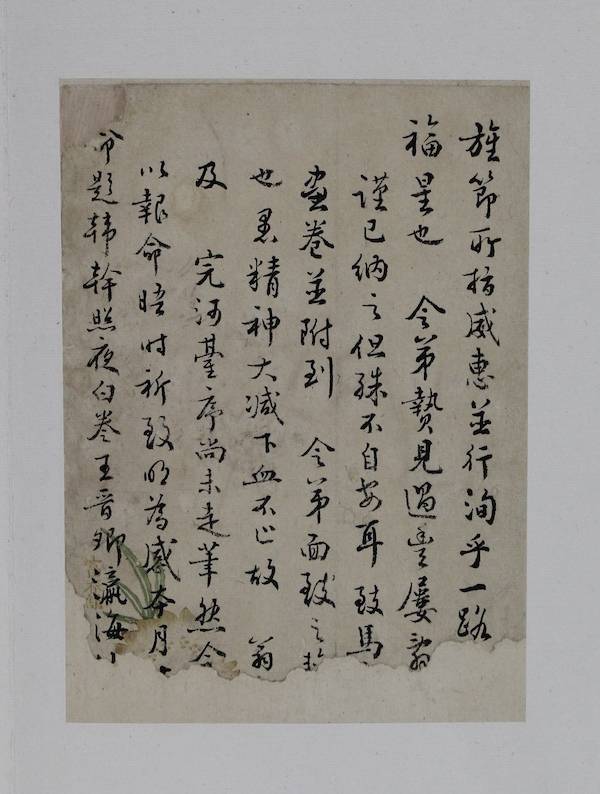 旌節所指威惠並行洵乎一路
福星也 令弟贄見過豐屢
謹已纳之但殊不自安耳 馬
畫卷並附到 令弟面致之
也 精神大减下血不止故 翁
及 完河臺序尚未走筆然今
以報命晤时祈致 為感本月
命題韩幹照夜白卷王晋卿瀛海